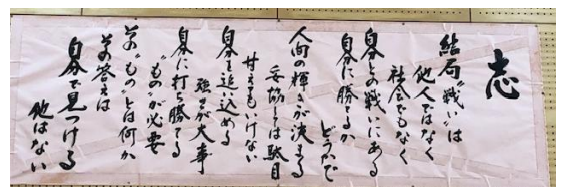 志
結局"戦い"は
他人ではなく
社会でもなく
自分との戦いにある
自分に勝てるか
どうかで
人間の輝きが決まる
妥協しては駄目
甘えてもいけない
自分を追い込める
強さが大事
自分に打ち勝てる
"もの"が必要
その"もの"とは何か
その答えは
自分で見つける
他はない